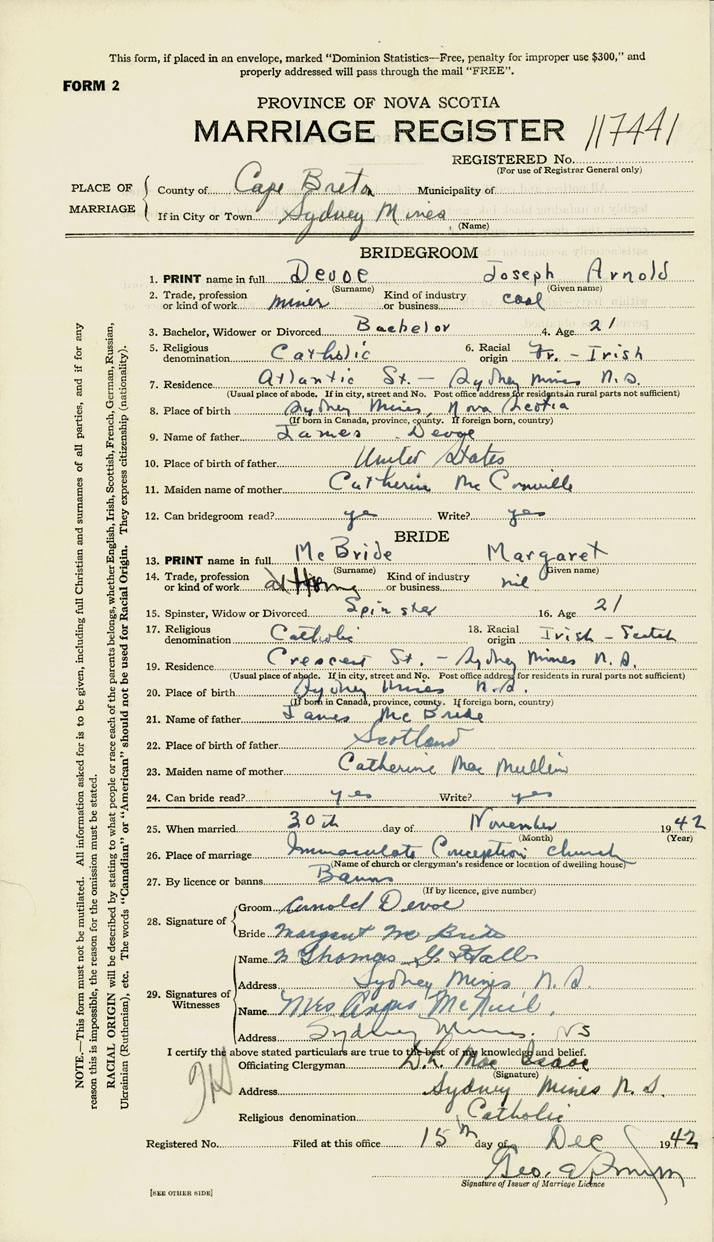 This form, if placed in an envelope, marked “Dominion Statistics—Free, penalty for improper use $300,” and
properly addressed will pass through the mail “FREE”.
FORM 2
PROVINCE OF NOVA SCOTIA
MARRIAGE REGISTER 117441
REGISTERED No.
(For use of Registrar General only)
PLACE OF MARRIAGE
County of Cape Breton Municipality of
If in City or Town Sydney Mines
(Name)
BRIDEGROOM
1. PRINT name in full Devoe Joseph Arnold
(Surname) (Given name)
2. Trade, profession or kind of work miner Kind of industry or business coal
3. Bachelor, Widower or Divorced Bachelor 4. Age 21
5. Religious denomination Catholic 6. Racial origin Fr. - Irish
7. Residence Atlantic St. — Sydney Mines N.S.
(Usual place of abode. If in city, street and No. Post office address for residents in rural parts not sufficient)
8. Place of birth Sydney Mines, Nova Scotia
(If born in Canada, province, county. If foreign born, country)
9. Name of father James Devoe
10. Place of birth of father United States
11. Maiden name of mother Catherine McConville
12. Can bridegroom read? yes Write? yes
BRIDE
13. PRINT name in full McBride Margaret
(Surname) (Given name)
14. Trade, profession or kind of work at Home Kind of industry or business nil
15. Spinster, Widow or Divorced Spinster 16. Age 21
17. Religious denomination Catholic 18. Racial origin Irish - Scotch
19. Residence Crescent St. — Sydney Mines N.S.
(Usual place of abode. If in city, street and No. Post office address for residents in rural parts not sufficient)
20. Place of birth Sydney Mines N.S.
(If born in Canada, province, county. If foreign born, country)
21. Name of father James McBride
22. Place of birth of father Scotland
23. Maiden name of mother Catherine MacMullin
24. Can bride read? yes Write? yes
25. When married 30th day of November 1942
(Month) (Year)
26. Place of marriage Immaculate Conception church
(Name of church or clergyman's residence or location of dwelling house)
27. By licence or banns Banns
(If by licence, give number)
28. Signature of
Groom Arnold Devoe
Bride Margaret McBride
29. Signatures of Witnesses
Name Thomas G
Address Sydney Mines, N.S.
Name Mrs Angus McNeil.
Address Sydney Mines. NS
I certify the above stated particulars are true to the best of my knowledge and belief.
Officiating Clergyman MacIsaac
(Signature)
Address Sydney Mines N.S.
Religious denomination Catholic
Registered No. Filed at this office 15th day of Dec 1942
Geo.
Signature of Issuer of Marriage Licence
[SEE OTHER SIDE]
NOTE.—This form must not be mutilated. All information asked for is to be given, including full Christian and surnames of all parties, and if for any
reason this is impossible, the reason for the omission must be stated.
RACIAL ORIGIN will be described by stating to what people or race each of the parents belongs, whether English, Irish, Scottish, French, German, Russian,
Ukrainian (Ruthenian), etc. The words “Canadian” or “American” should not be used for Racial Origin. They express citizenship (nationality).